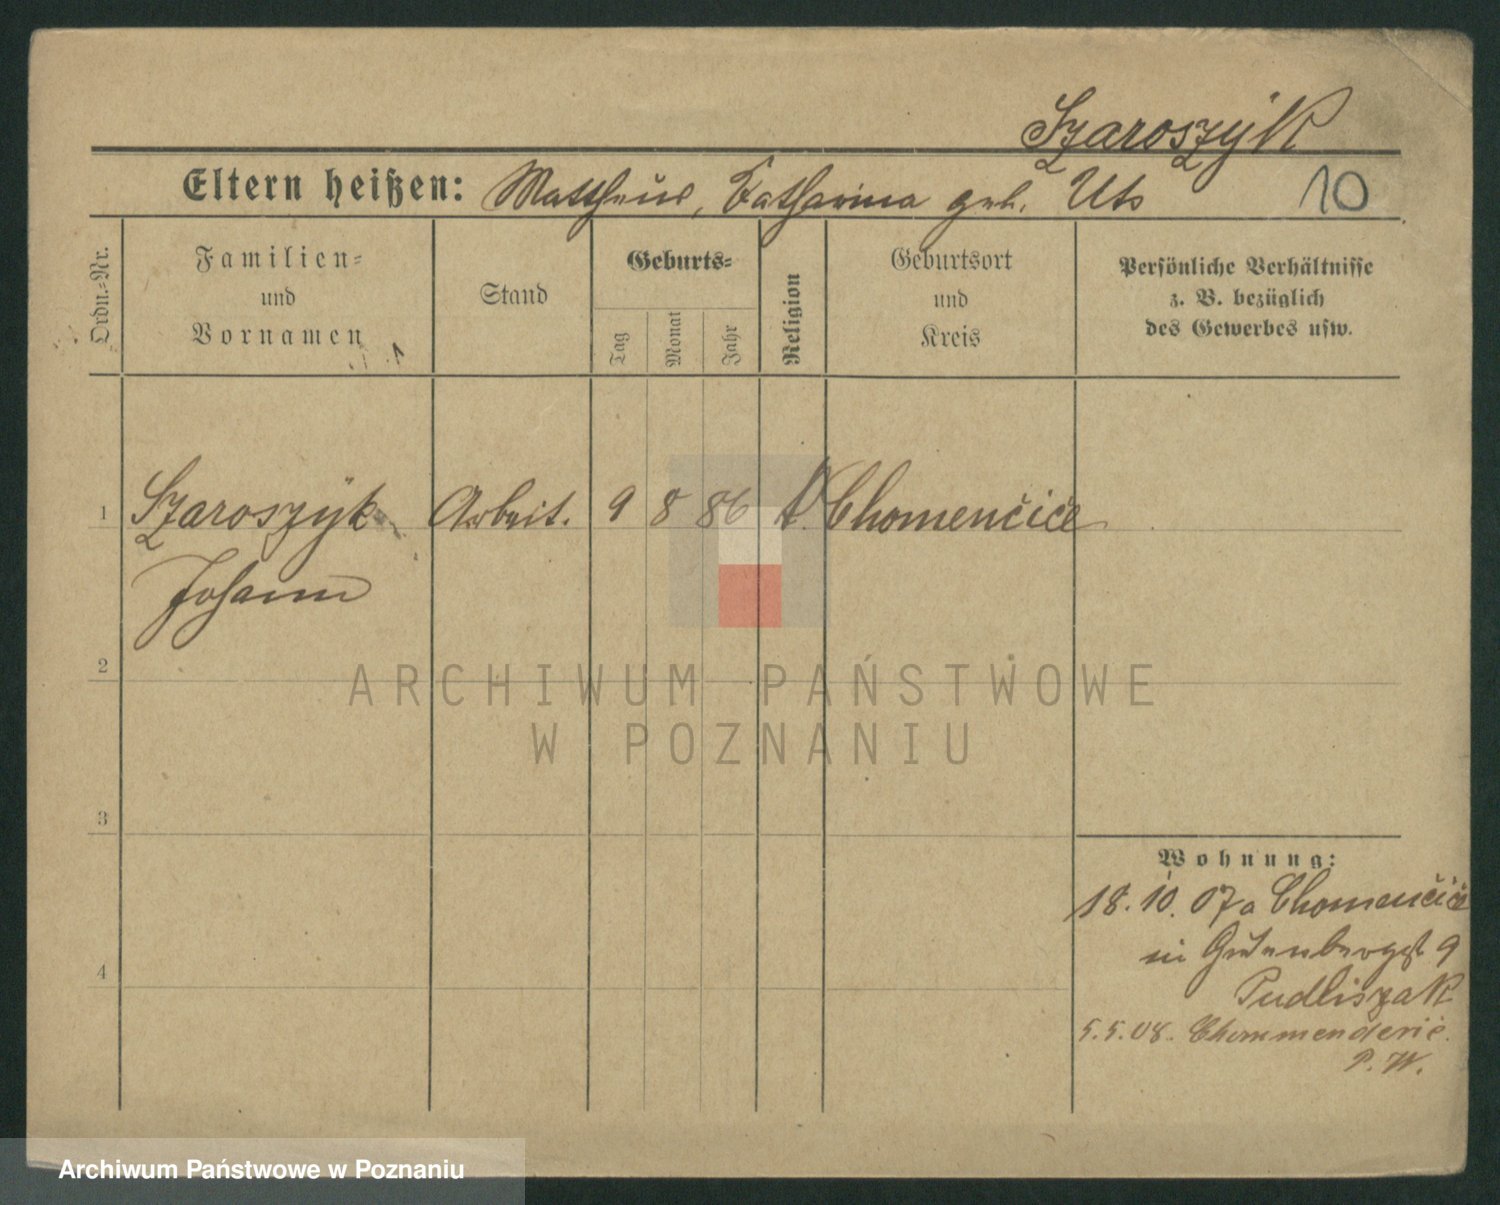 Szaroszÿk
Eltern heißen: Mattheus, Katharina geb. Uts
10
Ordn.-Nr.
Familien-
und
Vornamen
Stand
Geburts-
Tag
Monat
Jahr
Religion
Geburtsort
und
Kreis
Persönliche Verhältnisse
z. B. bezüglich
des Gewerbes usw.
1 Szaroszÿk Arbeit. 9 8 86 k. Chomenčiče
Johann
2
3
4
ARCHIWUM PAŃSTWOWE
W POZNANIU
Wohnung:
18.10.07 a Chomenčiče
in Gutenbergst 9
Pudliszak
5.5.08. Chommenderie
P. W.
Archiwum Państwowe w Poznaniu